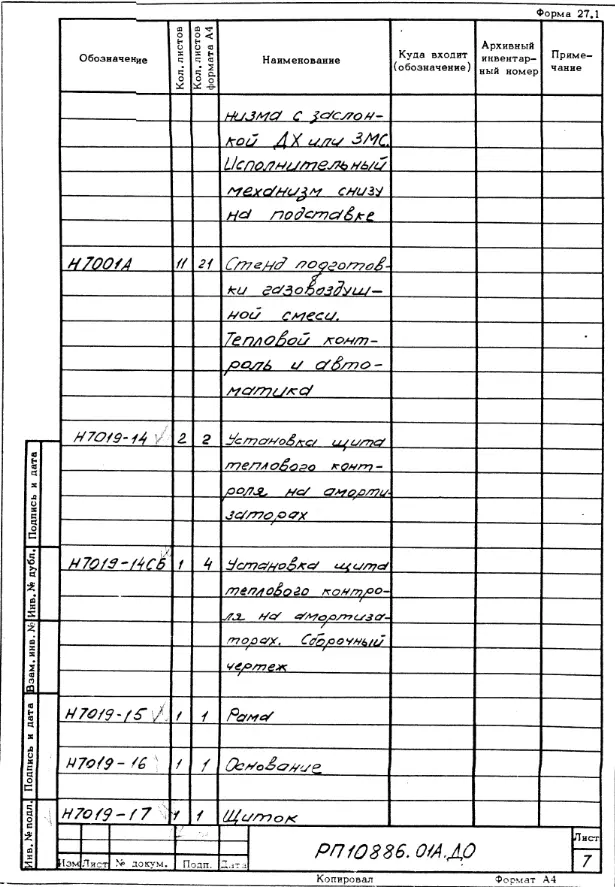 Форма 27.1
Обозначение Кол. листов Кол. листов формата А4 Наименование Куда входит (обозначение) Архивный инвентар- ный номер Приме- чание
низма с заслон-
кой ДХ или ЗМС.
Исполнительный
механизм снизу
на подставке
Н7001А 11 21 Стенд подготов-
ки газовоздуш-
ной смеси.
Тепловой конт-
роль и авто-
матика
Н7019-14 2 2 Установка щита
теплового конт-
роля на аморти-
заторах
Н7019-14СБ 1 4 Установка щита
теплового контро-
ля на амортиза-
торах. Сборочный
чертеж
Н7019-15 1 1 Рама
Н7019-16 1 1 Основание
Н7019-17 1 1 Щиток
Подпись и дата
Инв.№ дубл.
Взам.инв.№
Подпись и дата
Инв.№ подл.
Изм Лист № докум. Подп. Дата
РП10886.01А.ДО
Лист
7
Копировал Формат А4